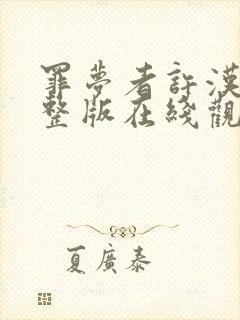 罪夢者許漢
整版在綫觀
夏廣泰